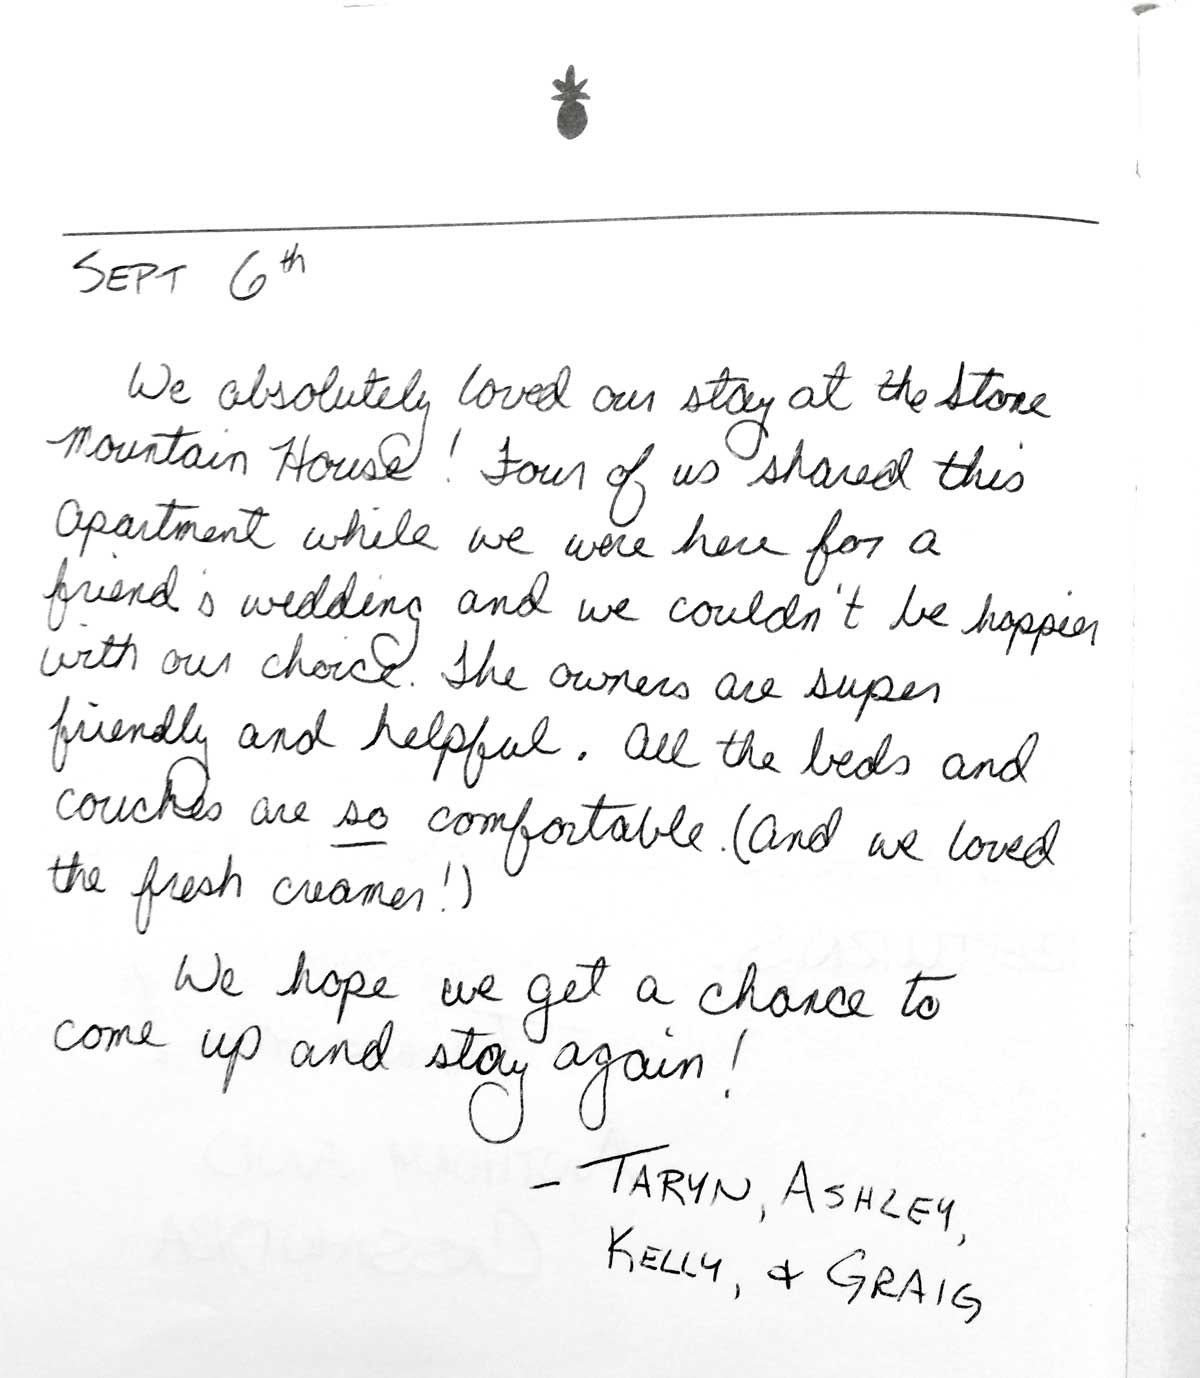 SEPT 6th
We absolutely loved our stay at the Stone
Mountain House! Four of us shared this
apartment while we were here for a
friend's wedding and we couldn't be happier
with our choice. The owners are super
friendly and helpful. All the beds and
couches are so comfortable. (And we loved
the fresh creamer!)
We hope we get a chance to
come up and stay again!
- TARYN, ASHLEY,
KELLY, & GRAIG